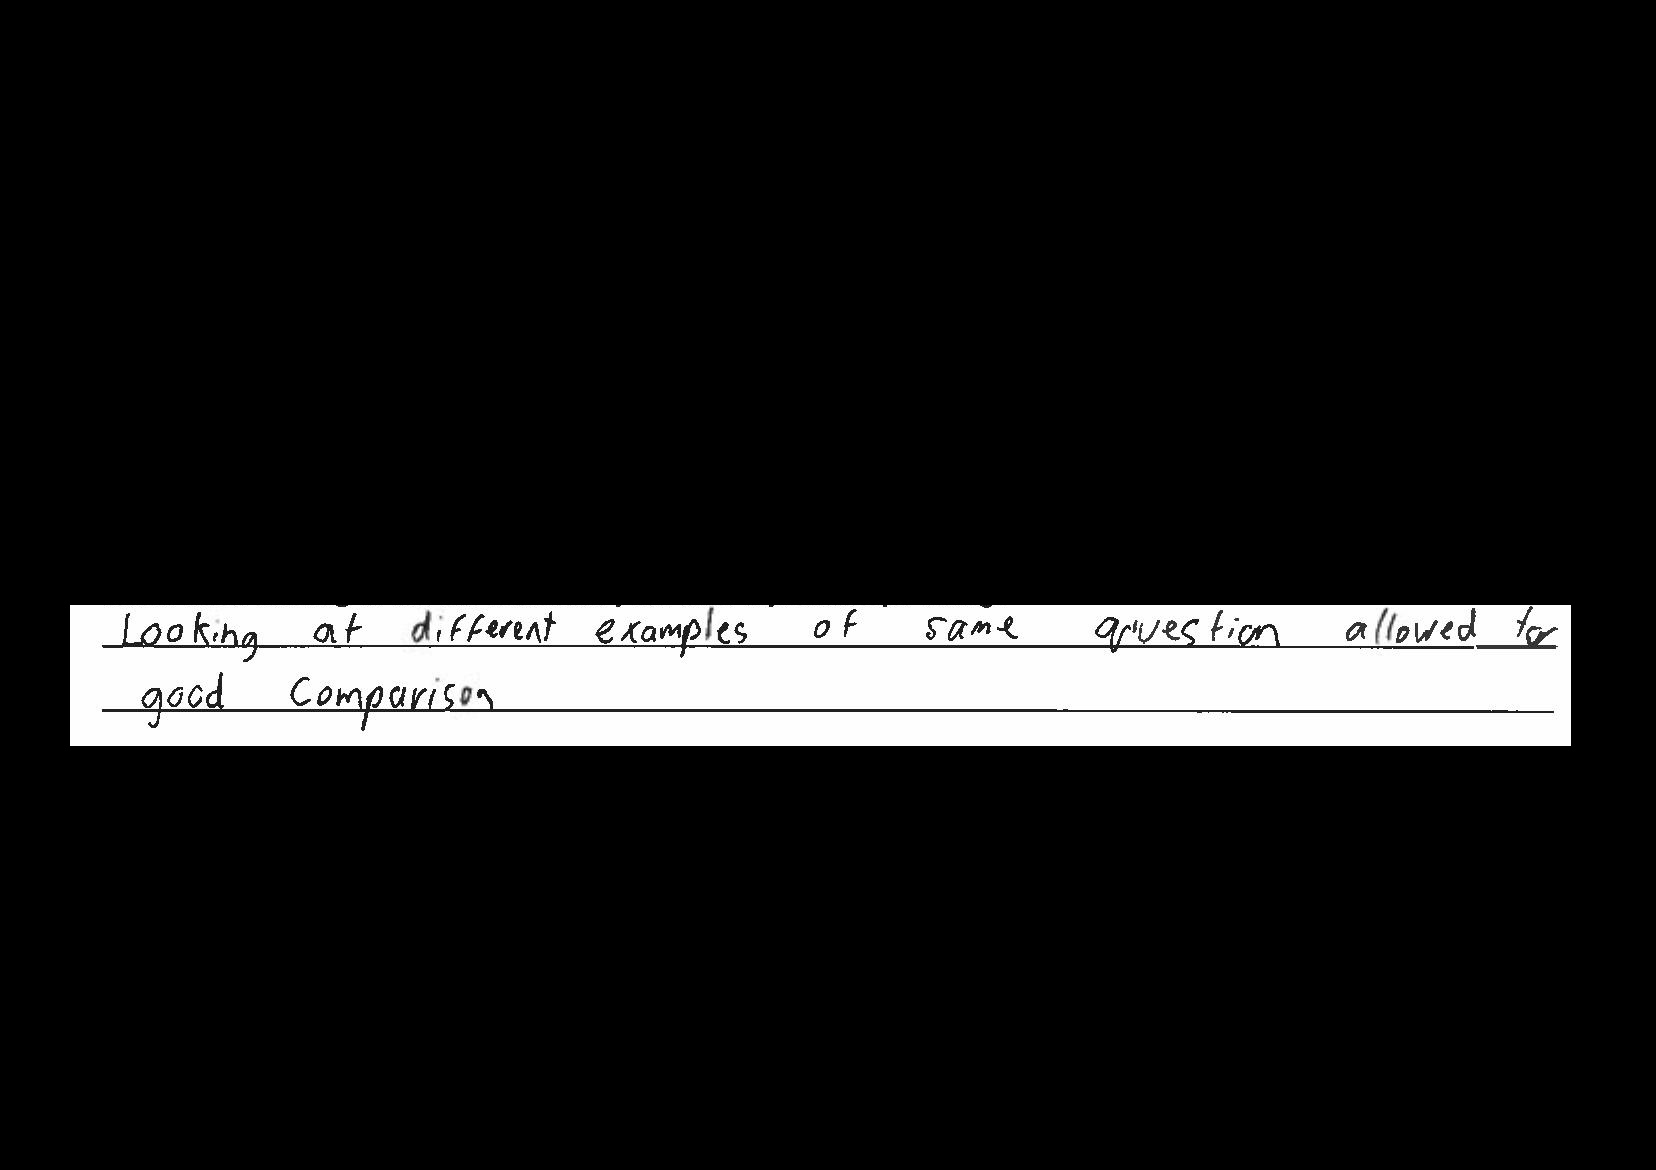 Looking at different examples of same question allowed for
good Comparison